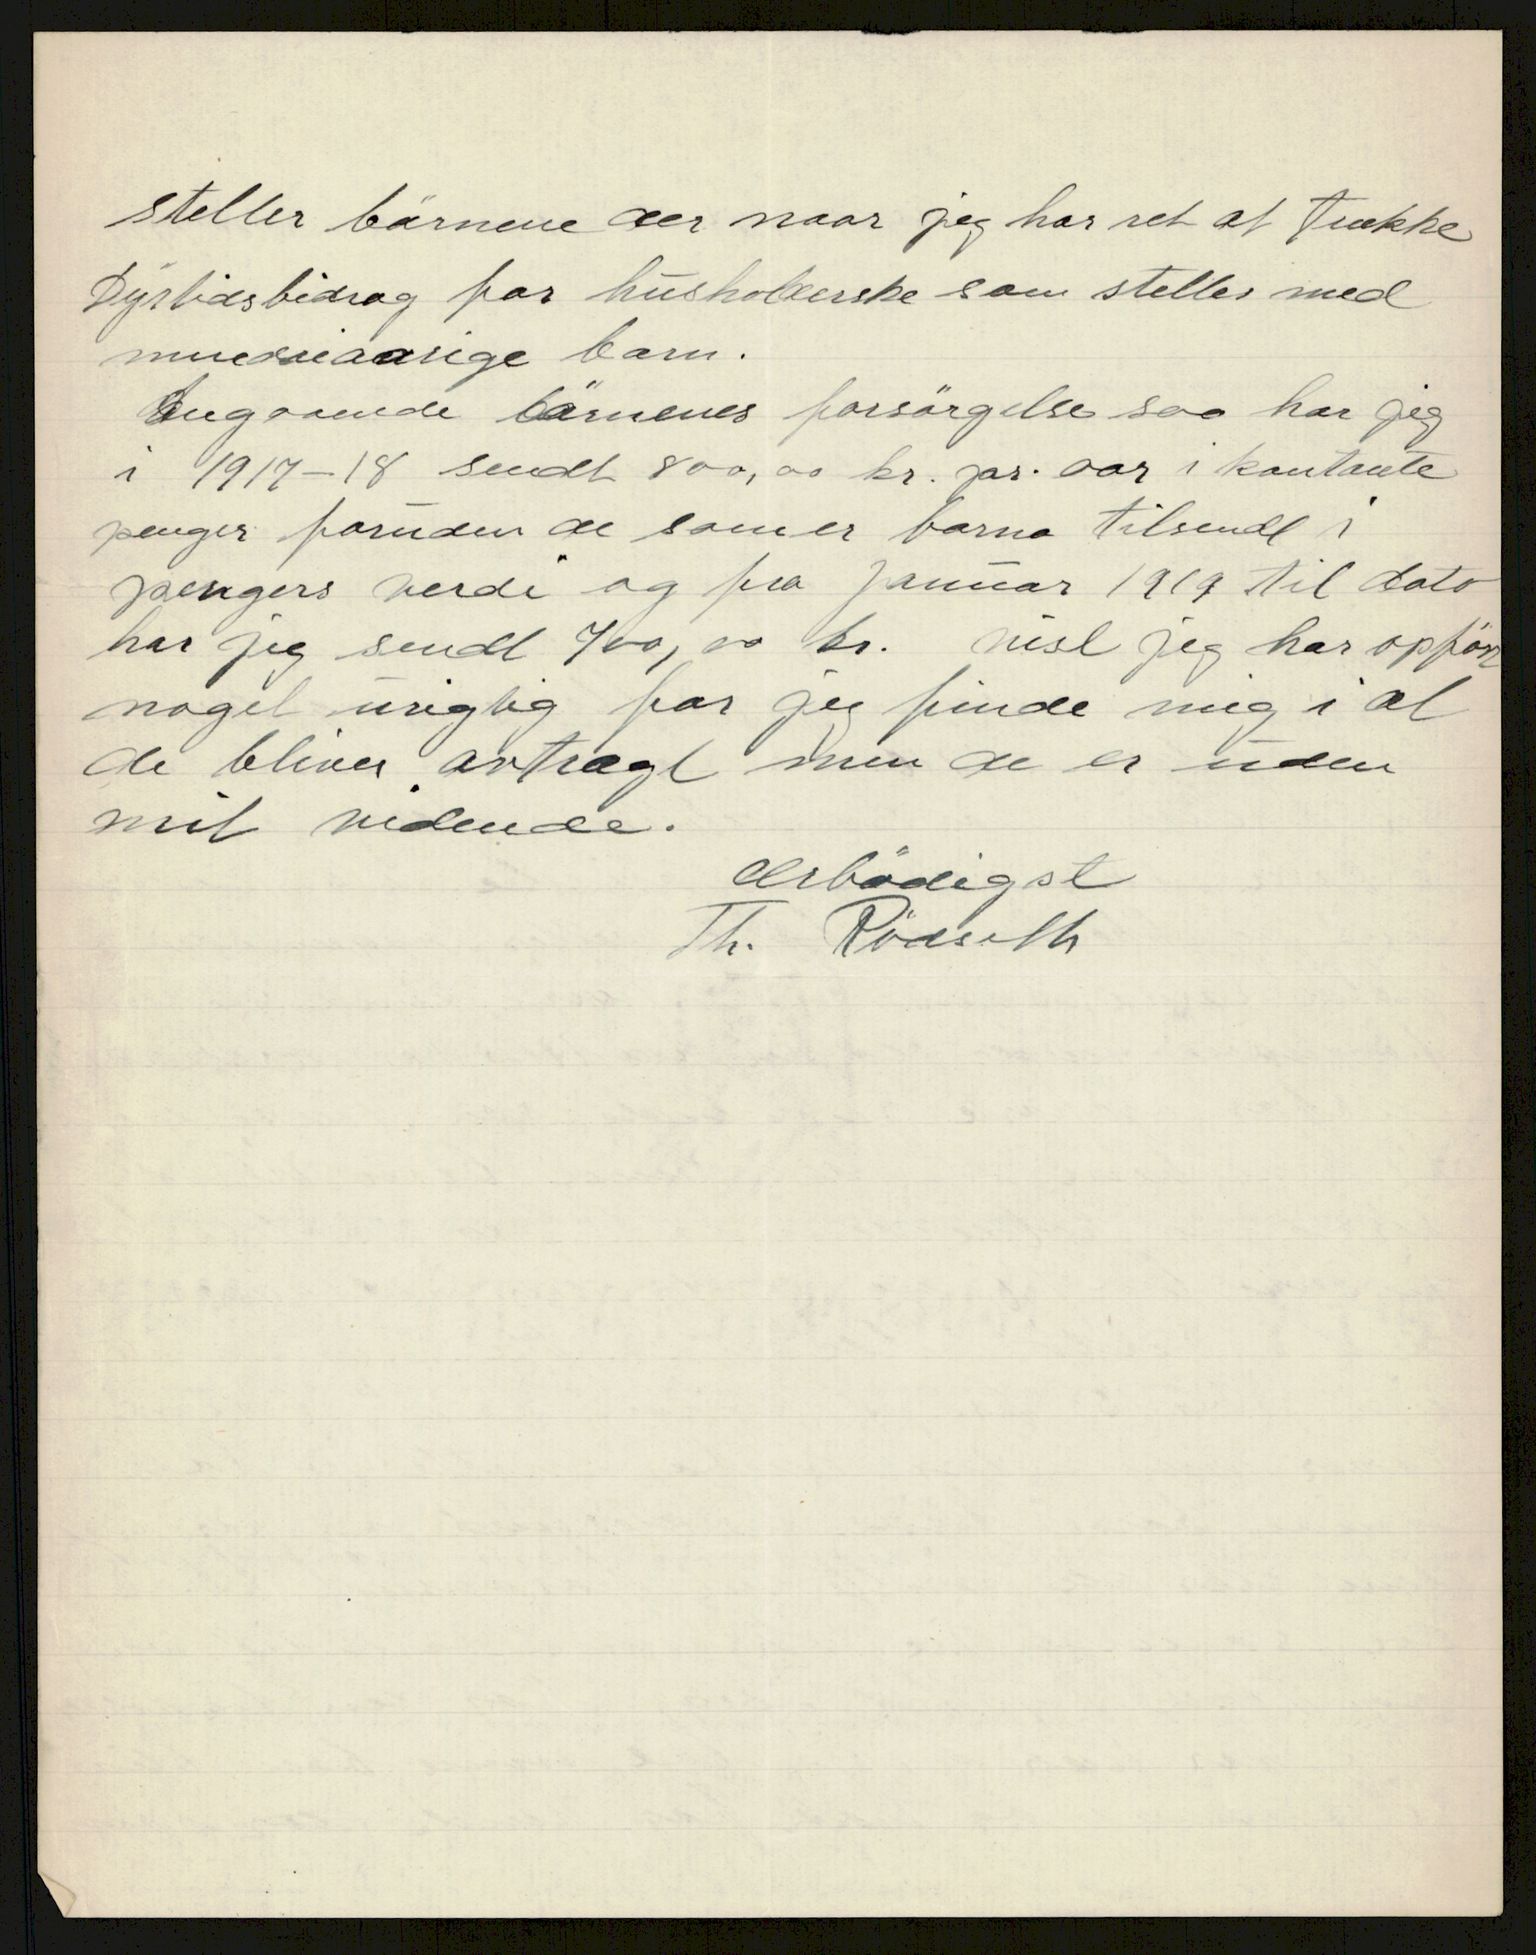 steller börnene der naar jeg har ret at trække
Dyrtidsbidrag for husholderske som steller med
mindreaarige barn.
Angaaende börnenes forsörgelse saa har jeg
i 1917-18 sendt 800,00 kr. pr. aar i kontante
penger foruden de som er barna tilsendt i
pengers verdi og fra januar 1919 til dato
har jeg sendt 700,00 kr. vist jeg har opfört
noget urigtig far jeg finde mig i at
de bliver avtragt men de er uden
mit vidende.
ærbödigst
Th. Rödseth